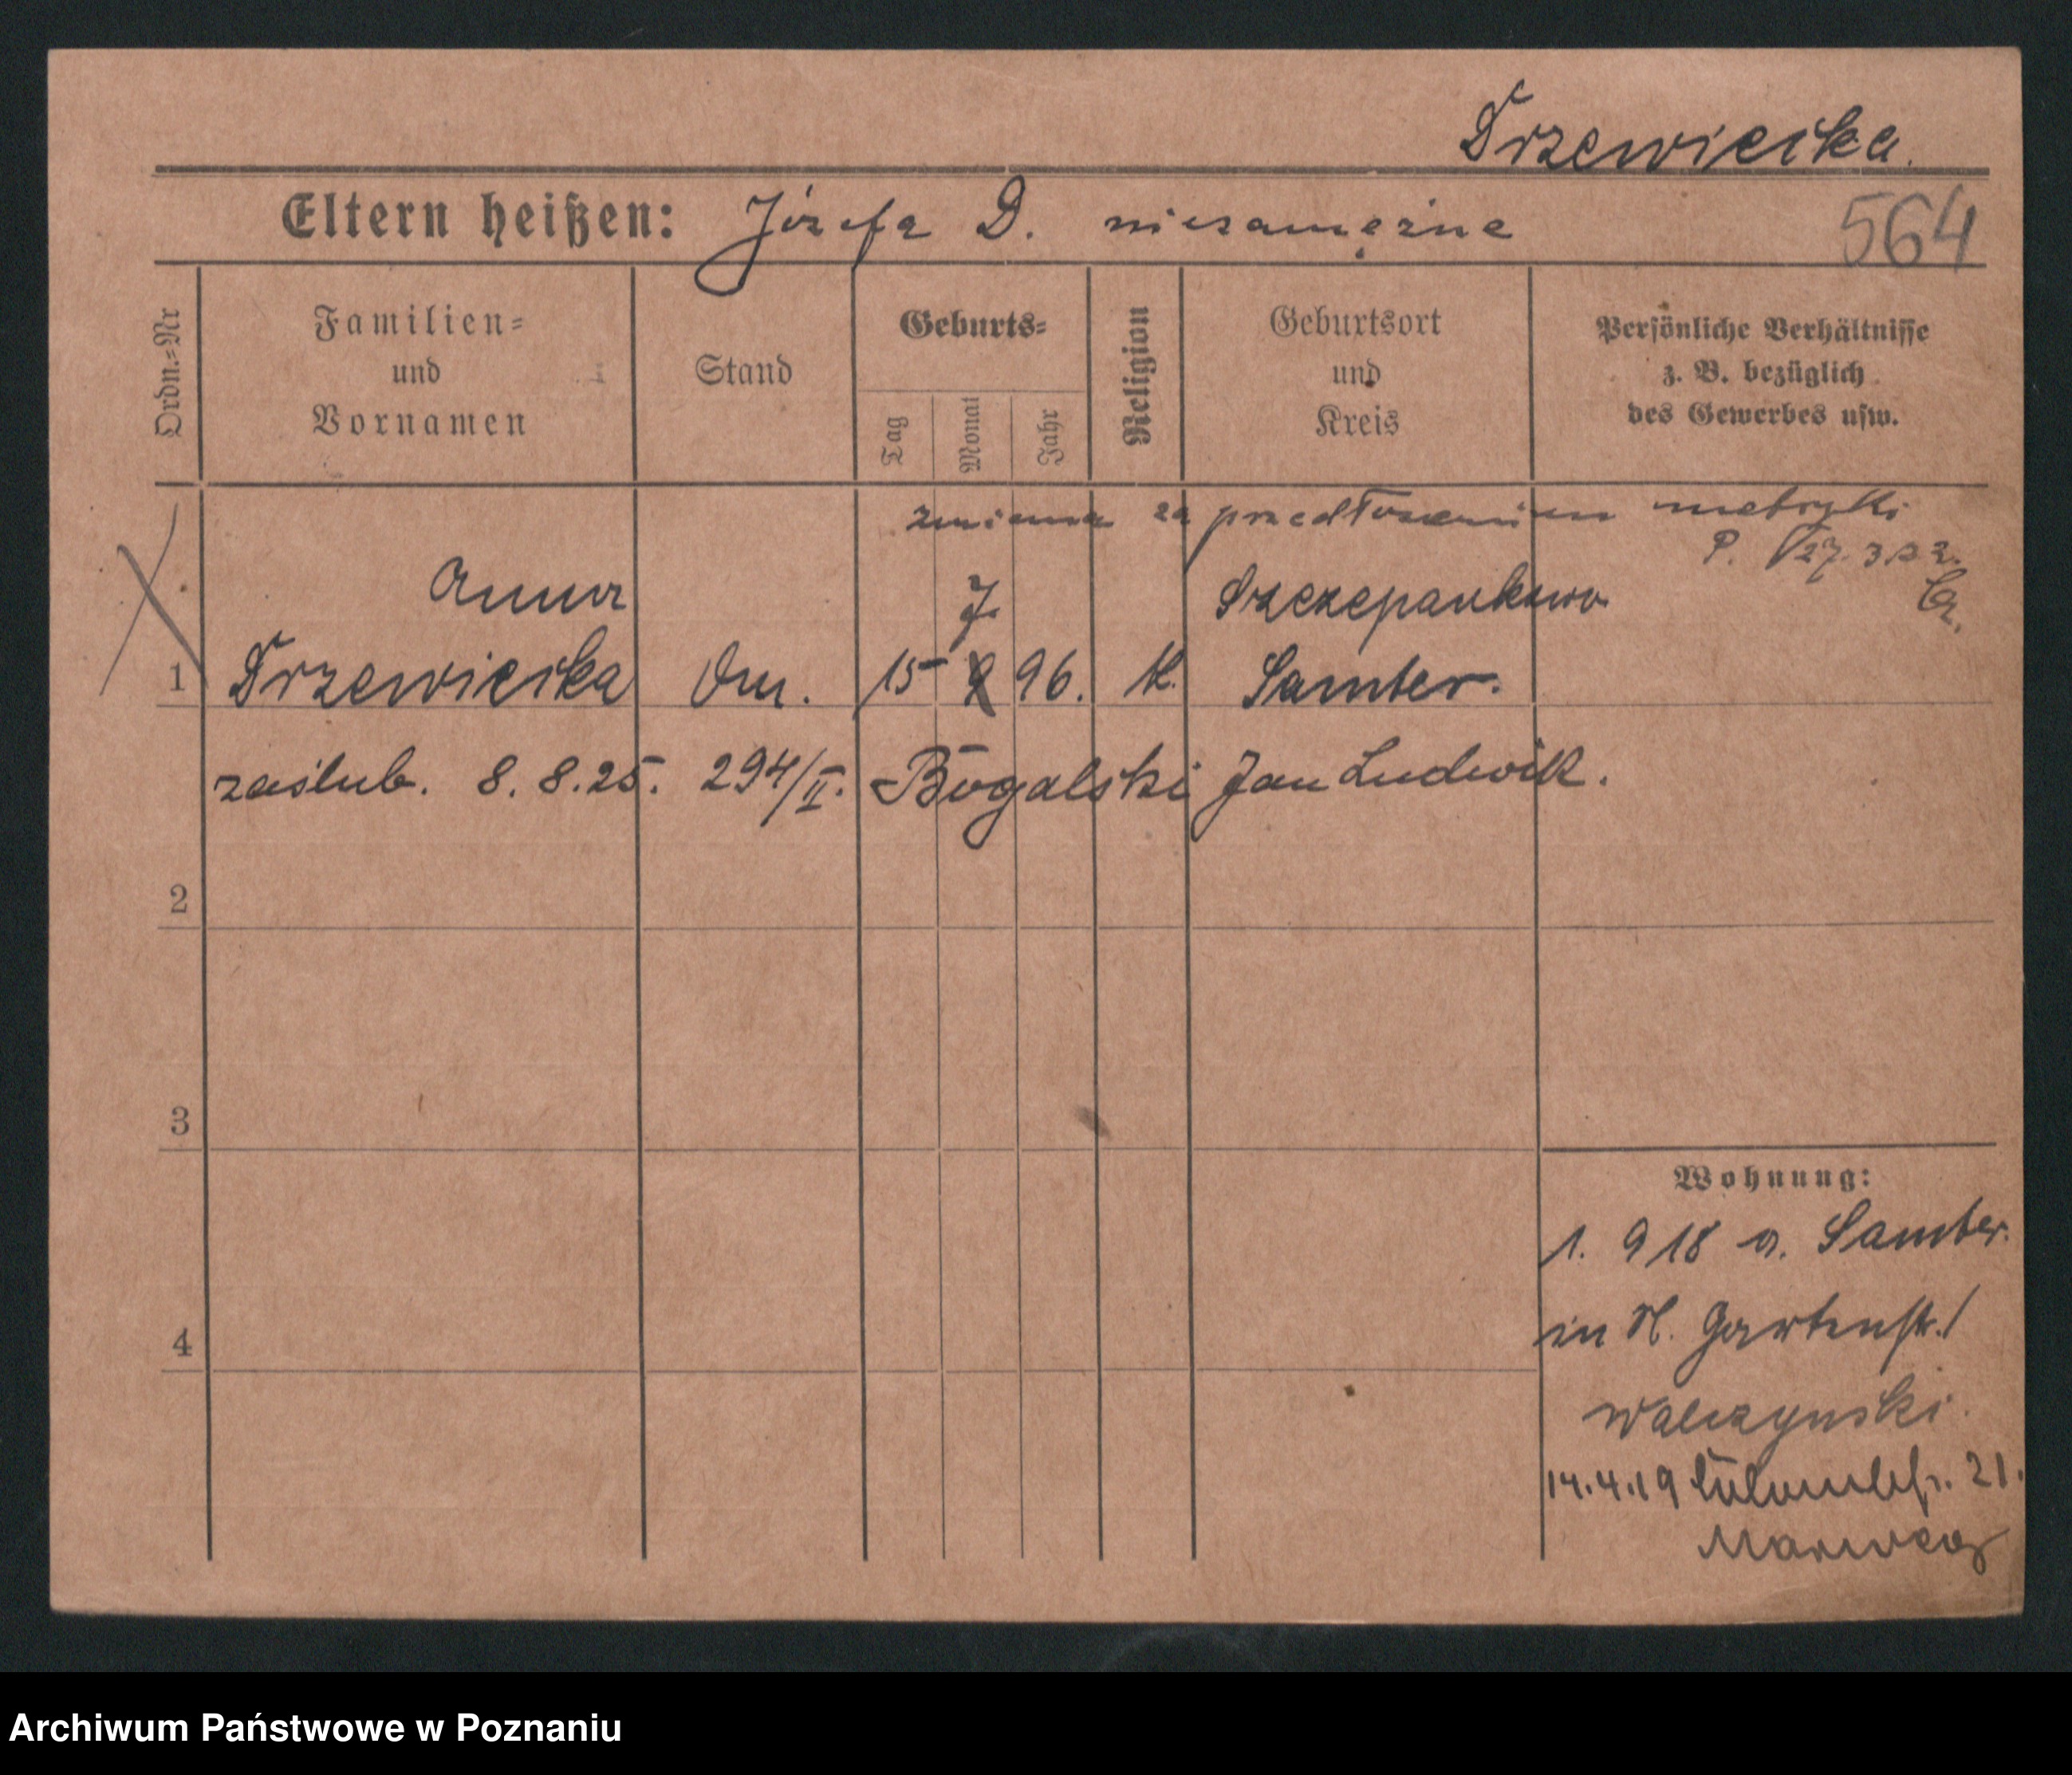 Drzewiecka.
Eltern heißen: Józefa D. niezamężna
564
Ordn.-Nr
Familien-
und
Vornamen
Stand
Geburts-
Tag
Monat
Jahr
Religion
Geburtsort
und
Kreis
Persönliche Verhältnisse
z. B. bezüglich
des Gewerbes usw.
zmiana za przedłożeniem metryki
P. 27.3.22.
Anna 7. Szczepankowo
1 Drzewiecka 15 96. K. Samter.
zaślub. 8.8.25. 294/II. Bogalski Jan Ludwik.
2
3
4
Wohnung:
1. 9 18 a. Samter.
in Gartenstr. 1
Walczynski.
14.4.19 21.
Archiwum Państwowe w Poznaniu